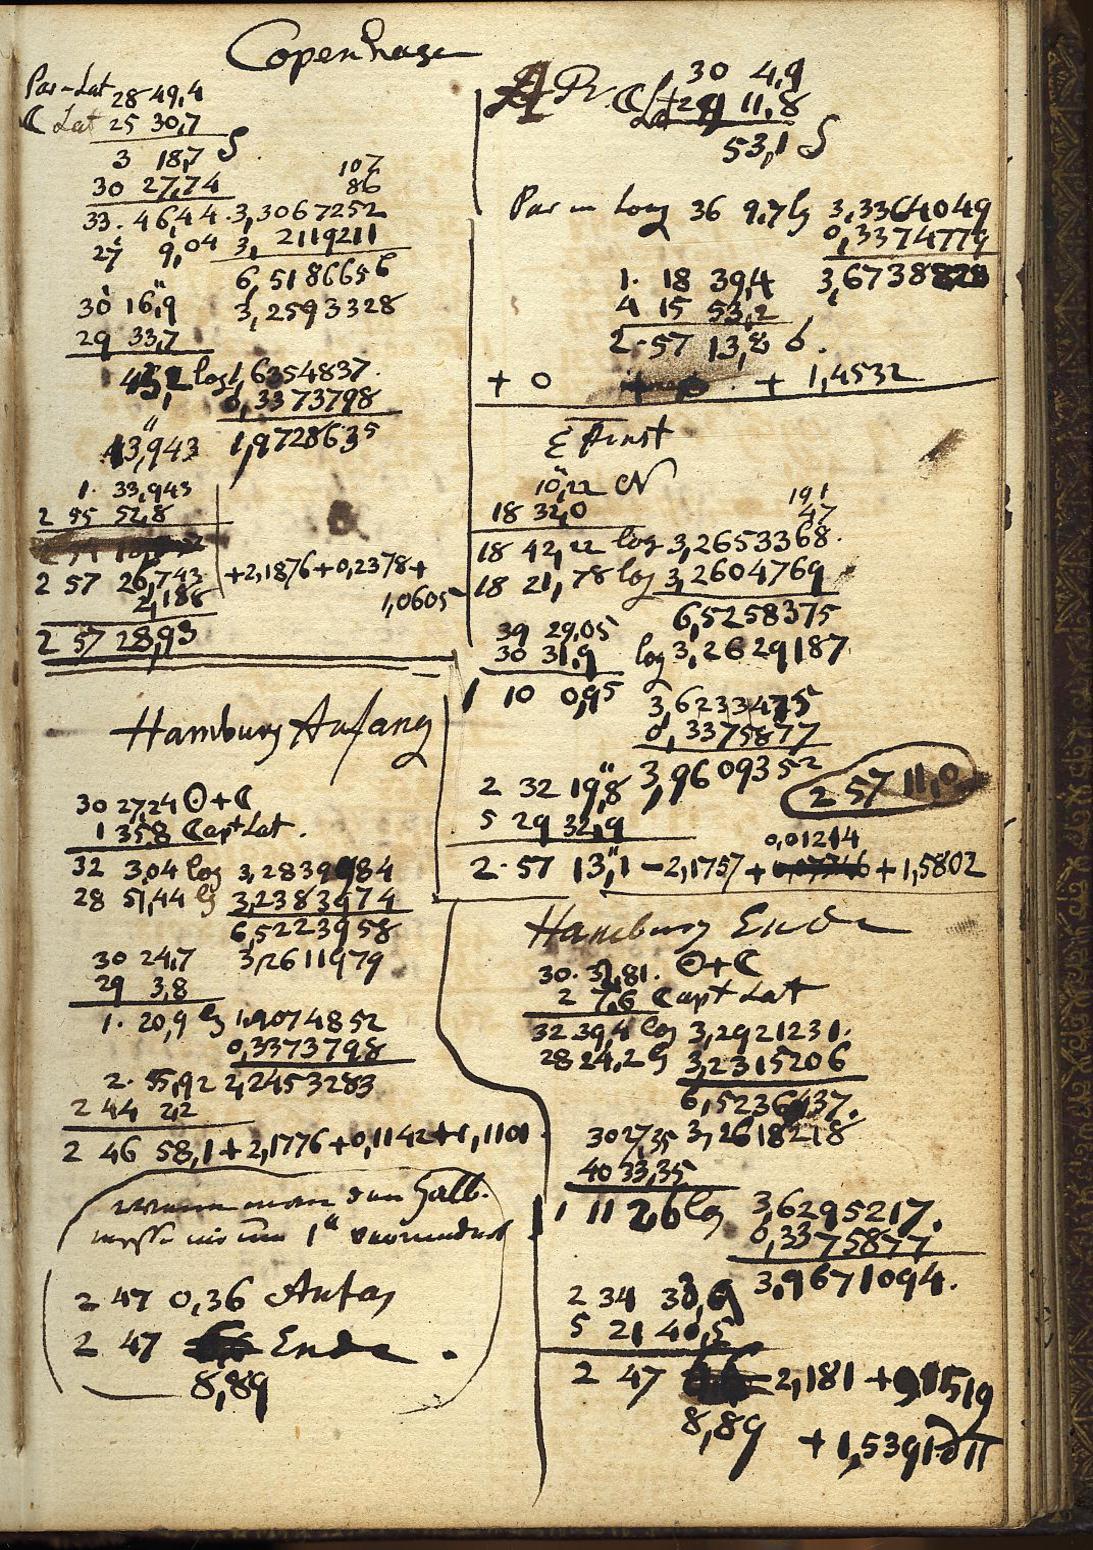 Copenhagen
Par-Lat 28 49,4
☾ Lat 25 30,7
3 18,7 S
30 27,74
107
86
33. 46,44. 3,3067252
27 9,04 3,2119211
6,5186656
30 16,9 3,2593328
29 33,7
43,2 log 1,6354837.
0,3373798
13,943 1,9728635
1. 33,943
2 55 52,8
2 57 26,743 +2,1876+0,2378+
2,188 1,0605
2 57 28,93
Hamburg Anfang
30 27,24 ⊙+☾
1 35,8 ☾apt Lat.
32 3,04 log 3,2839984
28 51,44 lg 3,2383974
6,5223958
30 24,7 3,2611979
29 3,8
1. 20,9 lg 1,9074852
0,3373798
2. 55,92 2,2453283
2 44 2,2
2 46 58,1+2,1776+0,1142+1,1101
wenn man den Halb-
messer ☉ um 1" vermindert
2 47 0,36 Anfang
2 47 Ende.
8,89
30 4,9
☾ Lat 29 11,8
53,1 S
Par in Long 36 9,7 lg 3,3364049
0,3374779
1. 18 39,4 3,6738828
4 15 53,2
2. 57 13,8 6.
+ 0 + 1,4532
10,22 N
18 32,0
191
47
18 42,22 log 3,2653368.
18 21,78 log 3,2604769
6,5258375
39 29,05
30 31,9 log 3,2629187
1 10 0,95 3,6233475
0,3375877
2 32 19,8 3,9609352
2 57 11,0
5 29 32,9
0,01214
2. 57 13,1 −2,1757+ +1,5802
Hamburg Ende
30. 31,81. ⊙+☾
2 7,6 ☾apt Lat
32 39,4 log 3,2921231.
28 24,2 lg 3,2315206
6,5236437.
30 27,35 3,2618218
40 33,35
1 11 2,6 log 3,6295217.
0,3375877
2 34 30,6 3,9671094.
5 21 40,5
2 47 2,181 +0,1519
8,89 + 1,5391 dπ